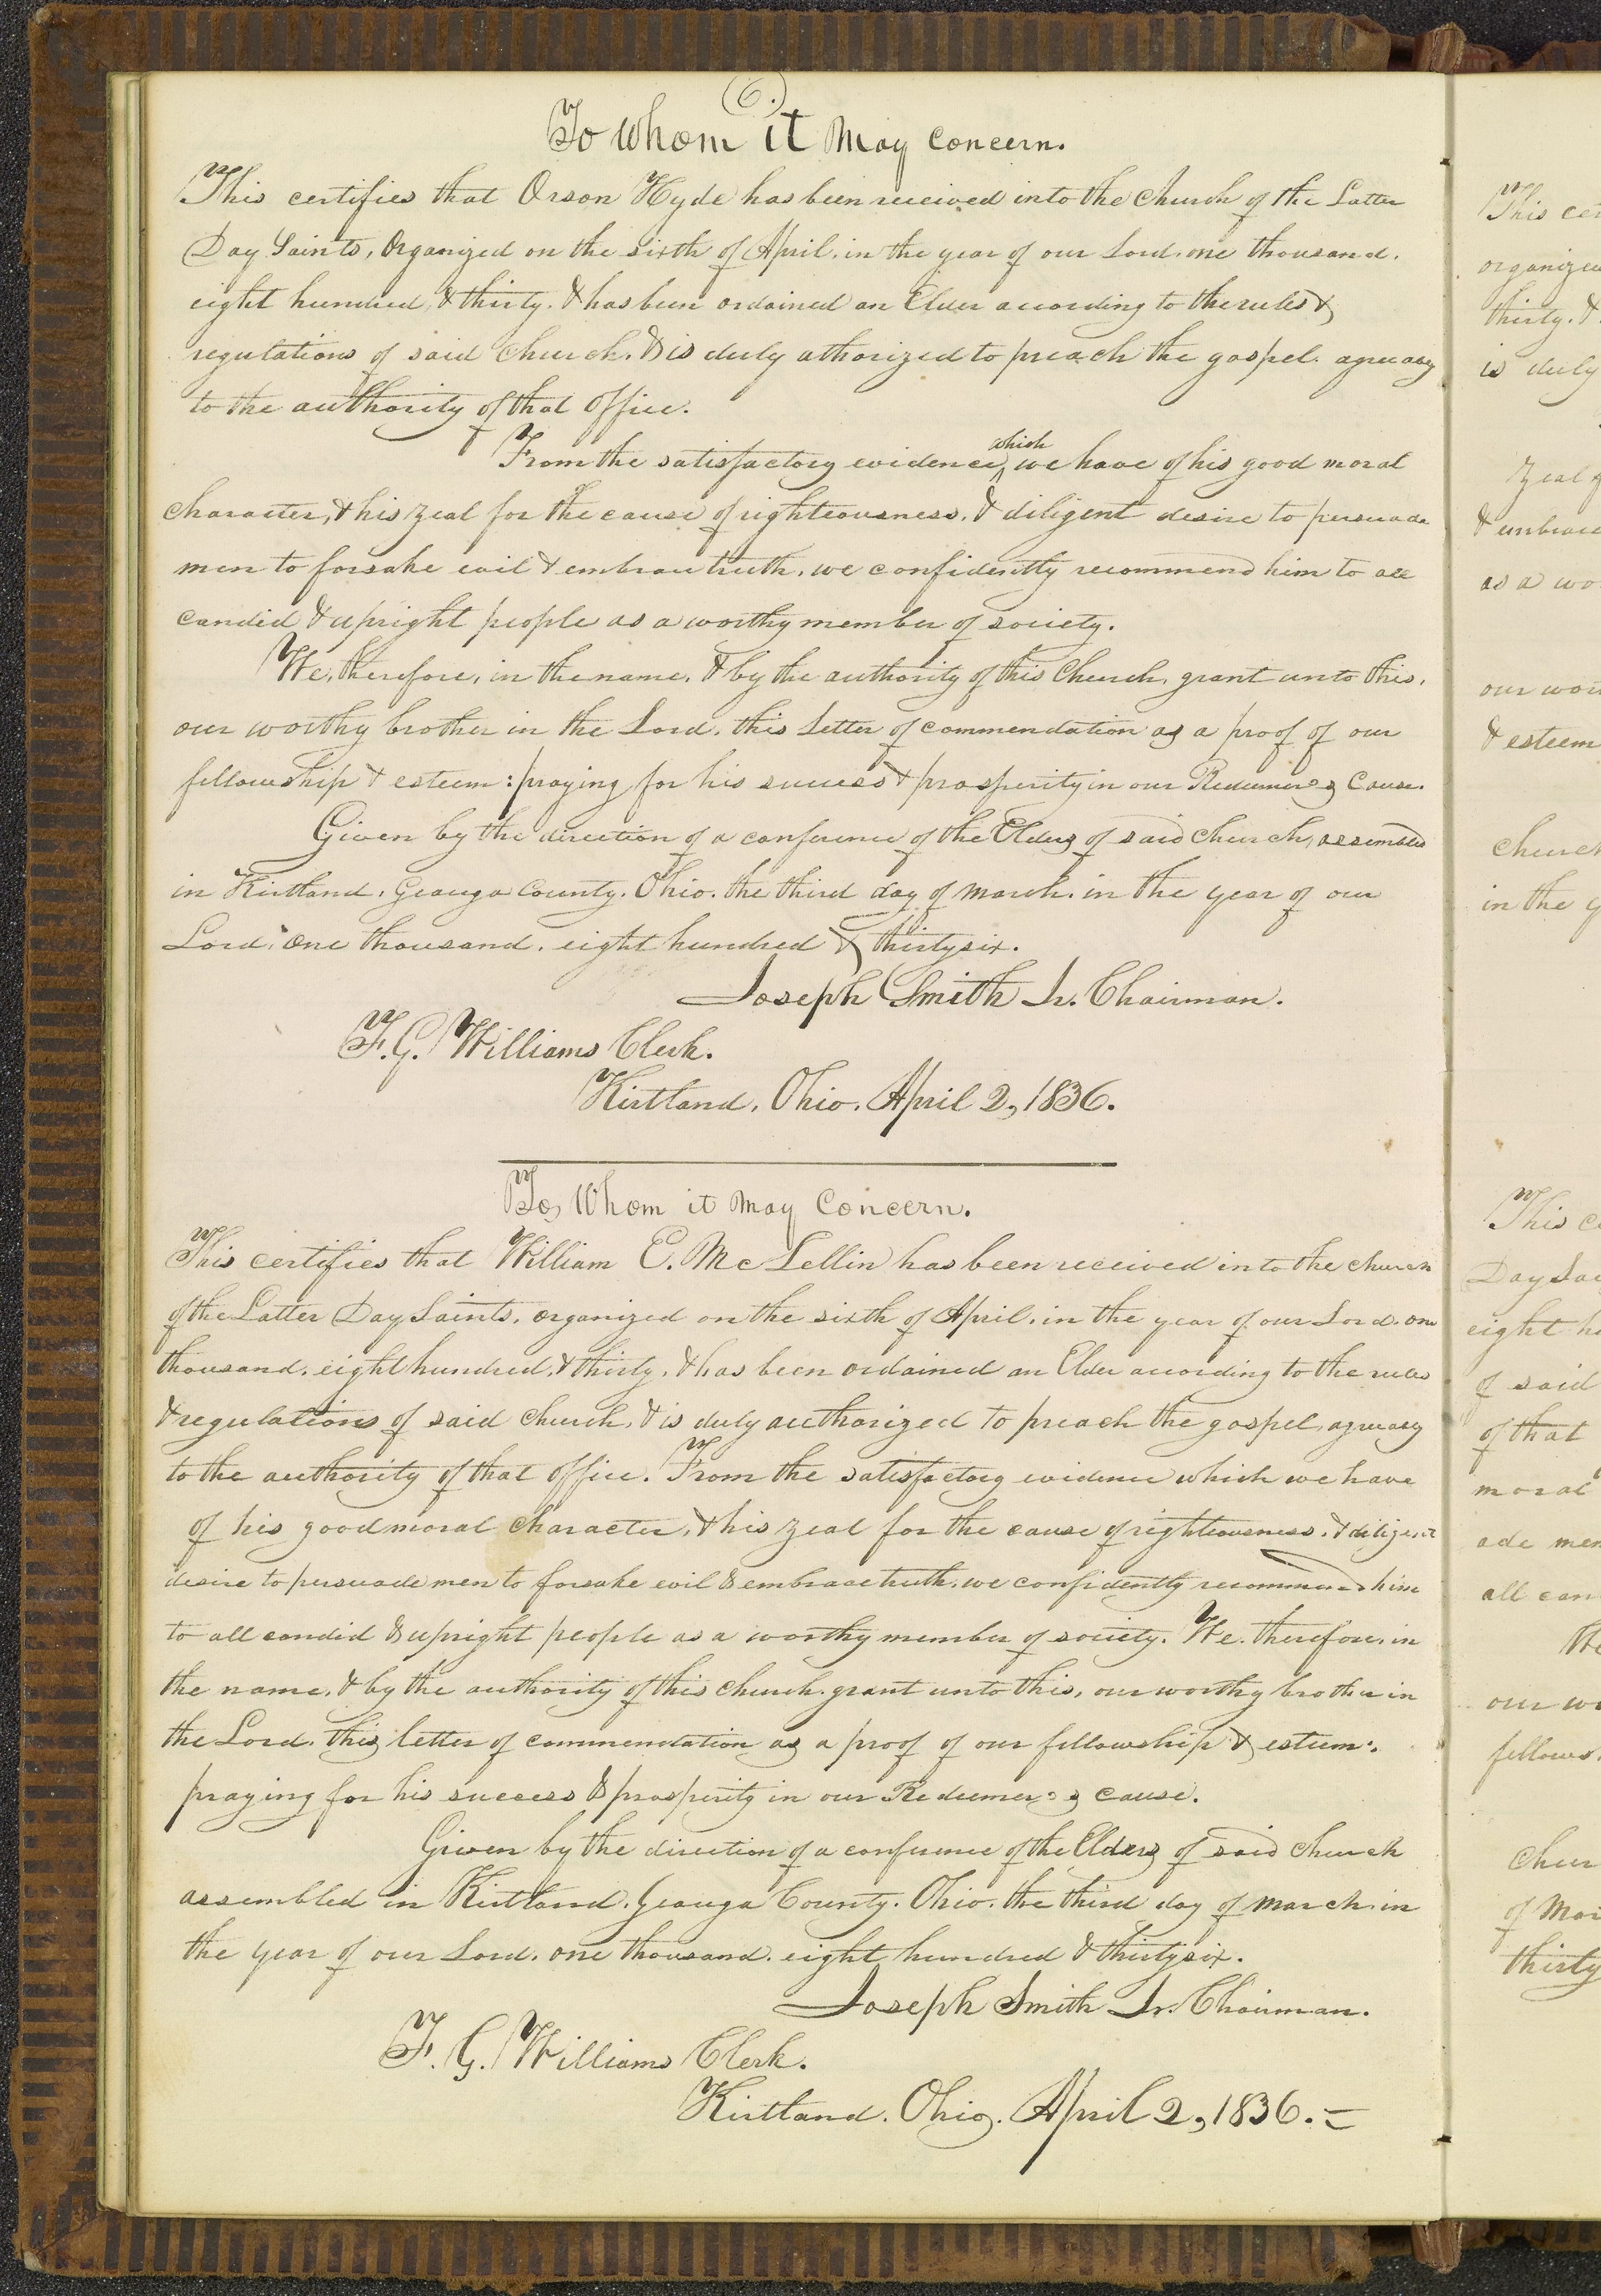 (6.)
To whom it may concern.
This certifies that Orson Hyde has been received into the church of the Latter
Day Saints, Organized on the sixth of April, in the year of our Lord, one thousand,
eight hundred, & thirty, & has been ordained an Elder according to the rules &
regulations of said church, & is duly athorized to preach the gospel, agreeably
to the authority of that office.
From the satisfactory evidence, which we have of his good moral
character, & his zeal for the cause of righteousness, & diligent desire to persuade
men to forsake evil & embrace truth, we confidently recommend him to all
candid & upright people as a worthy member of society.
We, therefore, in the name, & by the authority of this Church, grant unto this,
our worthy brother in the Lord, this letter of commendation as a proof of our
fellowship & esteem: praying for his success & prosperity in our Redeemer's Cause.
Given by the direction of a conference of the Elders of said church, assembled
in Kirtland, Geauga County, Ohio, the third day of march, in the year of our
Lord, One thousand, eight hundred & thirty six.
Joseph Smith Jr. Chairman.
F. G. Williams Clerk.
Kirtland, Ohio, April 2, 1836.
To, Whom it may Concern.
This certifies that William E. McLellin has been received into the church
of the Latter Day Saints, organized on the sixth of April, in the year of our Lord, one
thousand, eight hundred, & thirty, & has been ordained an Elder according to the rules
& regulations of said church, & is duly authorized to preach the gospel, agreeaby
to the authority of that office. From the satisfactory evidence which we have
of his good moral character, & his zeal for the cause of righteousness, & diligent
desire to persuade men to forsake evil & embrace truth, we confidently recommend him
to all candid & upright people as a worthy member of society. We, therefore, in
the name, & by the authority of this church, grant unto this, our worthy brother in
the Lord, this letter of commendation as a proof of our fellowship & esteem:
praying for his success & prosperity in our Redeemer's cause.
Given by the direction of a conference of the Elders of said church
assembled in Kirtland, Geauga County, Ohio, the third day of march, in
the year of our Lord, one thousand, eight hundred & thirty six.
Joseph Smith Jr. Chairman.
F. G. Williams Clerk.
Kirtland, Ohio, April 2, 1836.=
This
organized
thirty, &
is duly
zeal
& embrace
as a
our
& esteem
church
in the
This
Day
eight
of said
of that
moral
ade men
all
We
our
of
thirty